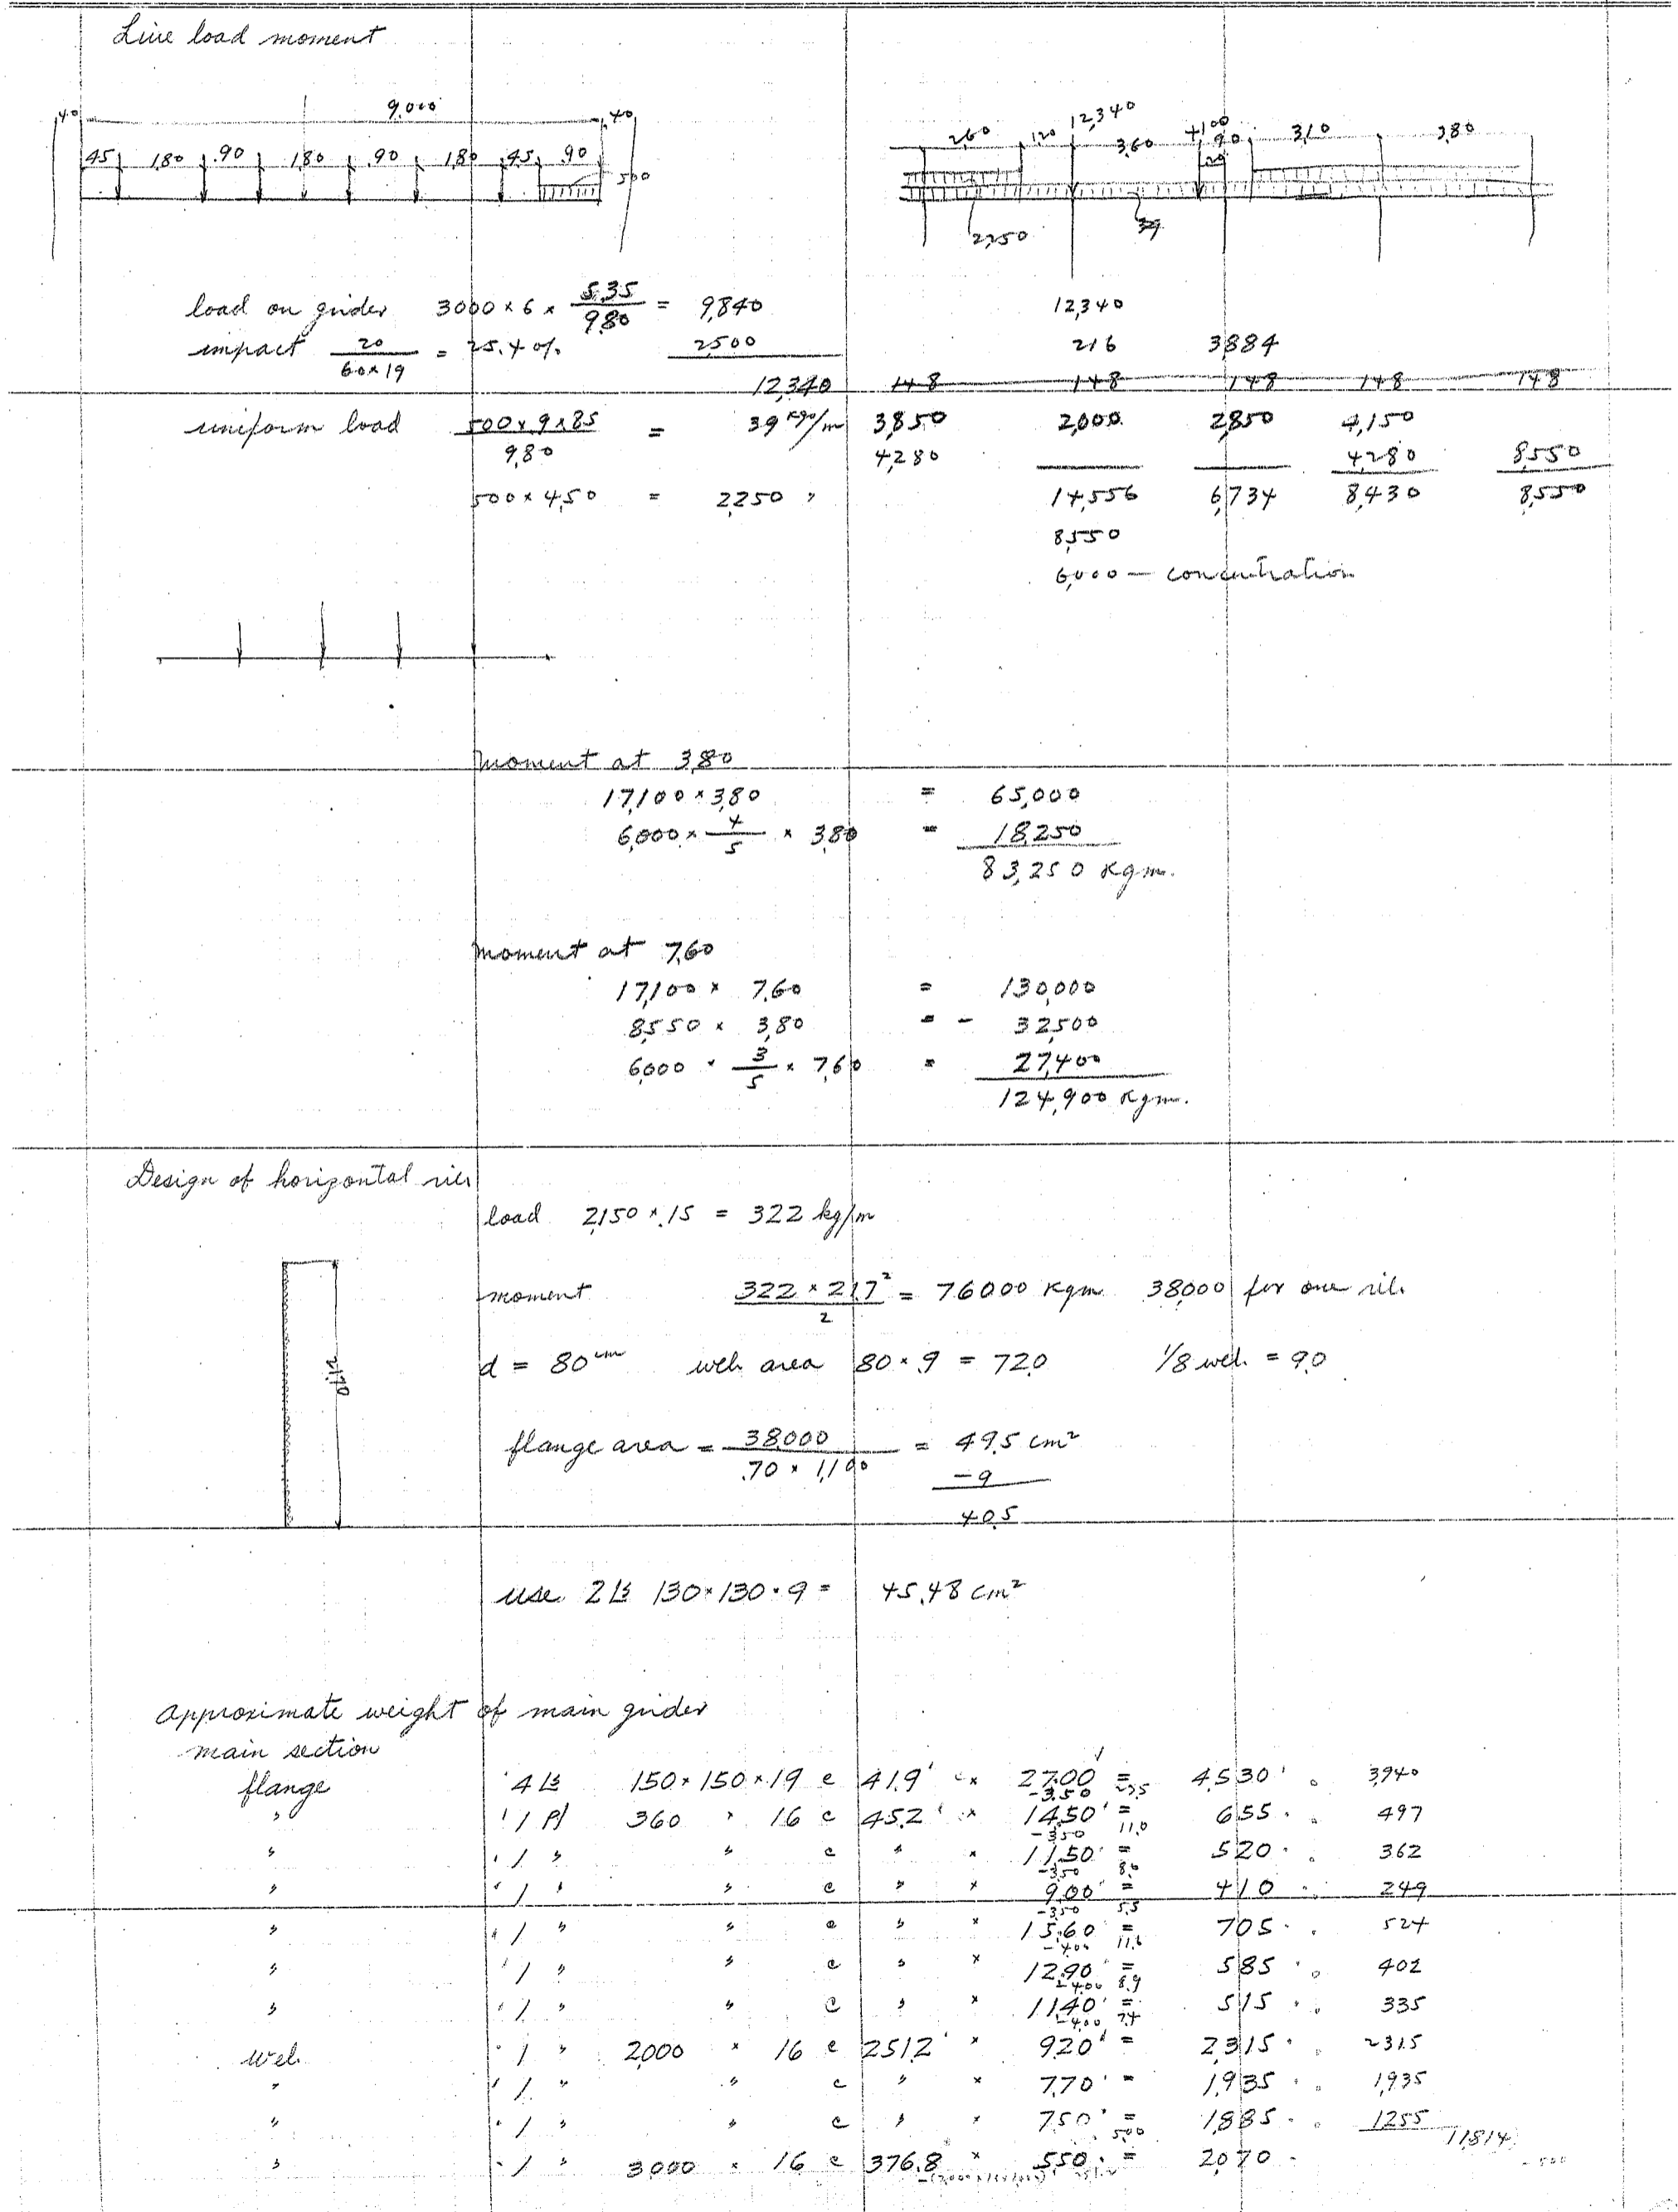 Live load moment
9.000
40 40
.45 1.80 .90 1.80 .90 1.80 .45 .90
500
12,340
2.60 1.20 3.60 .90 3.10 3.80
2,250 39
load on girder 3000 × 6 × 5.35 / 9.80 = 9,840
12,340
impact 20 / 60 × 19 = 25.4 % 2500
216 3884
12,340 148 148 148 148 148
uniform load 500 × 9 × 85 / 9.80 = 39 kg/m 3,850 2,000 2,850 4,150
4,280 4,280 8,550
500 × 4.50 = 2,250 " 14,556 6,734 8,430 8,550
8,550
6,000 — concentration
moment at 3.80
17,100 × 3.80 = 65,000
6,000 × 4/5 × 3.80 = 18,250
83,250 Kgm.
moment at 7.60
17,100 × 7.60 = 130,000
8550 × 3.80 = - 32,500
6,000 × 3/5 × 7.60 = 27,400
124,900 Kgm.
Design of horizontal rib
load 2,150 × .15 = 322 kg/m
moment 322 × 21.7² / 2 = 76000 Kgm 38,000 for one rib.
d = 80 cm web area 80 × .9 = 72.0 1/8 web. = 9.0
flange area = 38,000 / .70 × 1,100 = 49.5 cm²
-9
40.5
use 2 Ls 130 × 130 × 9 = 45.48 cm²
Approximate weight of main girder
main section
flange 4 Ls 150 × 150 × 19 @ 41.9 × 27.00 = 4,530 3,940
-3.50 23.5
" 1 Pl 360 × 16 @ 45.2 × 14.50 = 655 497
-3.50 11.0
" 1 " " @ " × 11.50 = 520 362
-3.50 8.0
" 1 " " @ " × 9.00 = 410 249
-3.50 5.5
" 1 " " @ " × 15.60 = 705 524
-4.00 11.6
" 1 " " @ " × 12.90 = 585 402
-4.00 8.9
" 1 " " @ " × 11.40 = 515 335
-4.00 7.4
web. 1 " 2,000 × 16 @ 251.2 × 9.20 = 2,315 2315
" 1 " " @ " × 7.70 = 1,935 1,935
" 1 " " @ " × 7.50 = 1,885 1255
5.00 11,814
" 1 " 3,000 × 16 @ 376.8 × 5.50 = 2,070